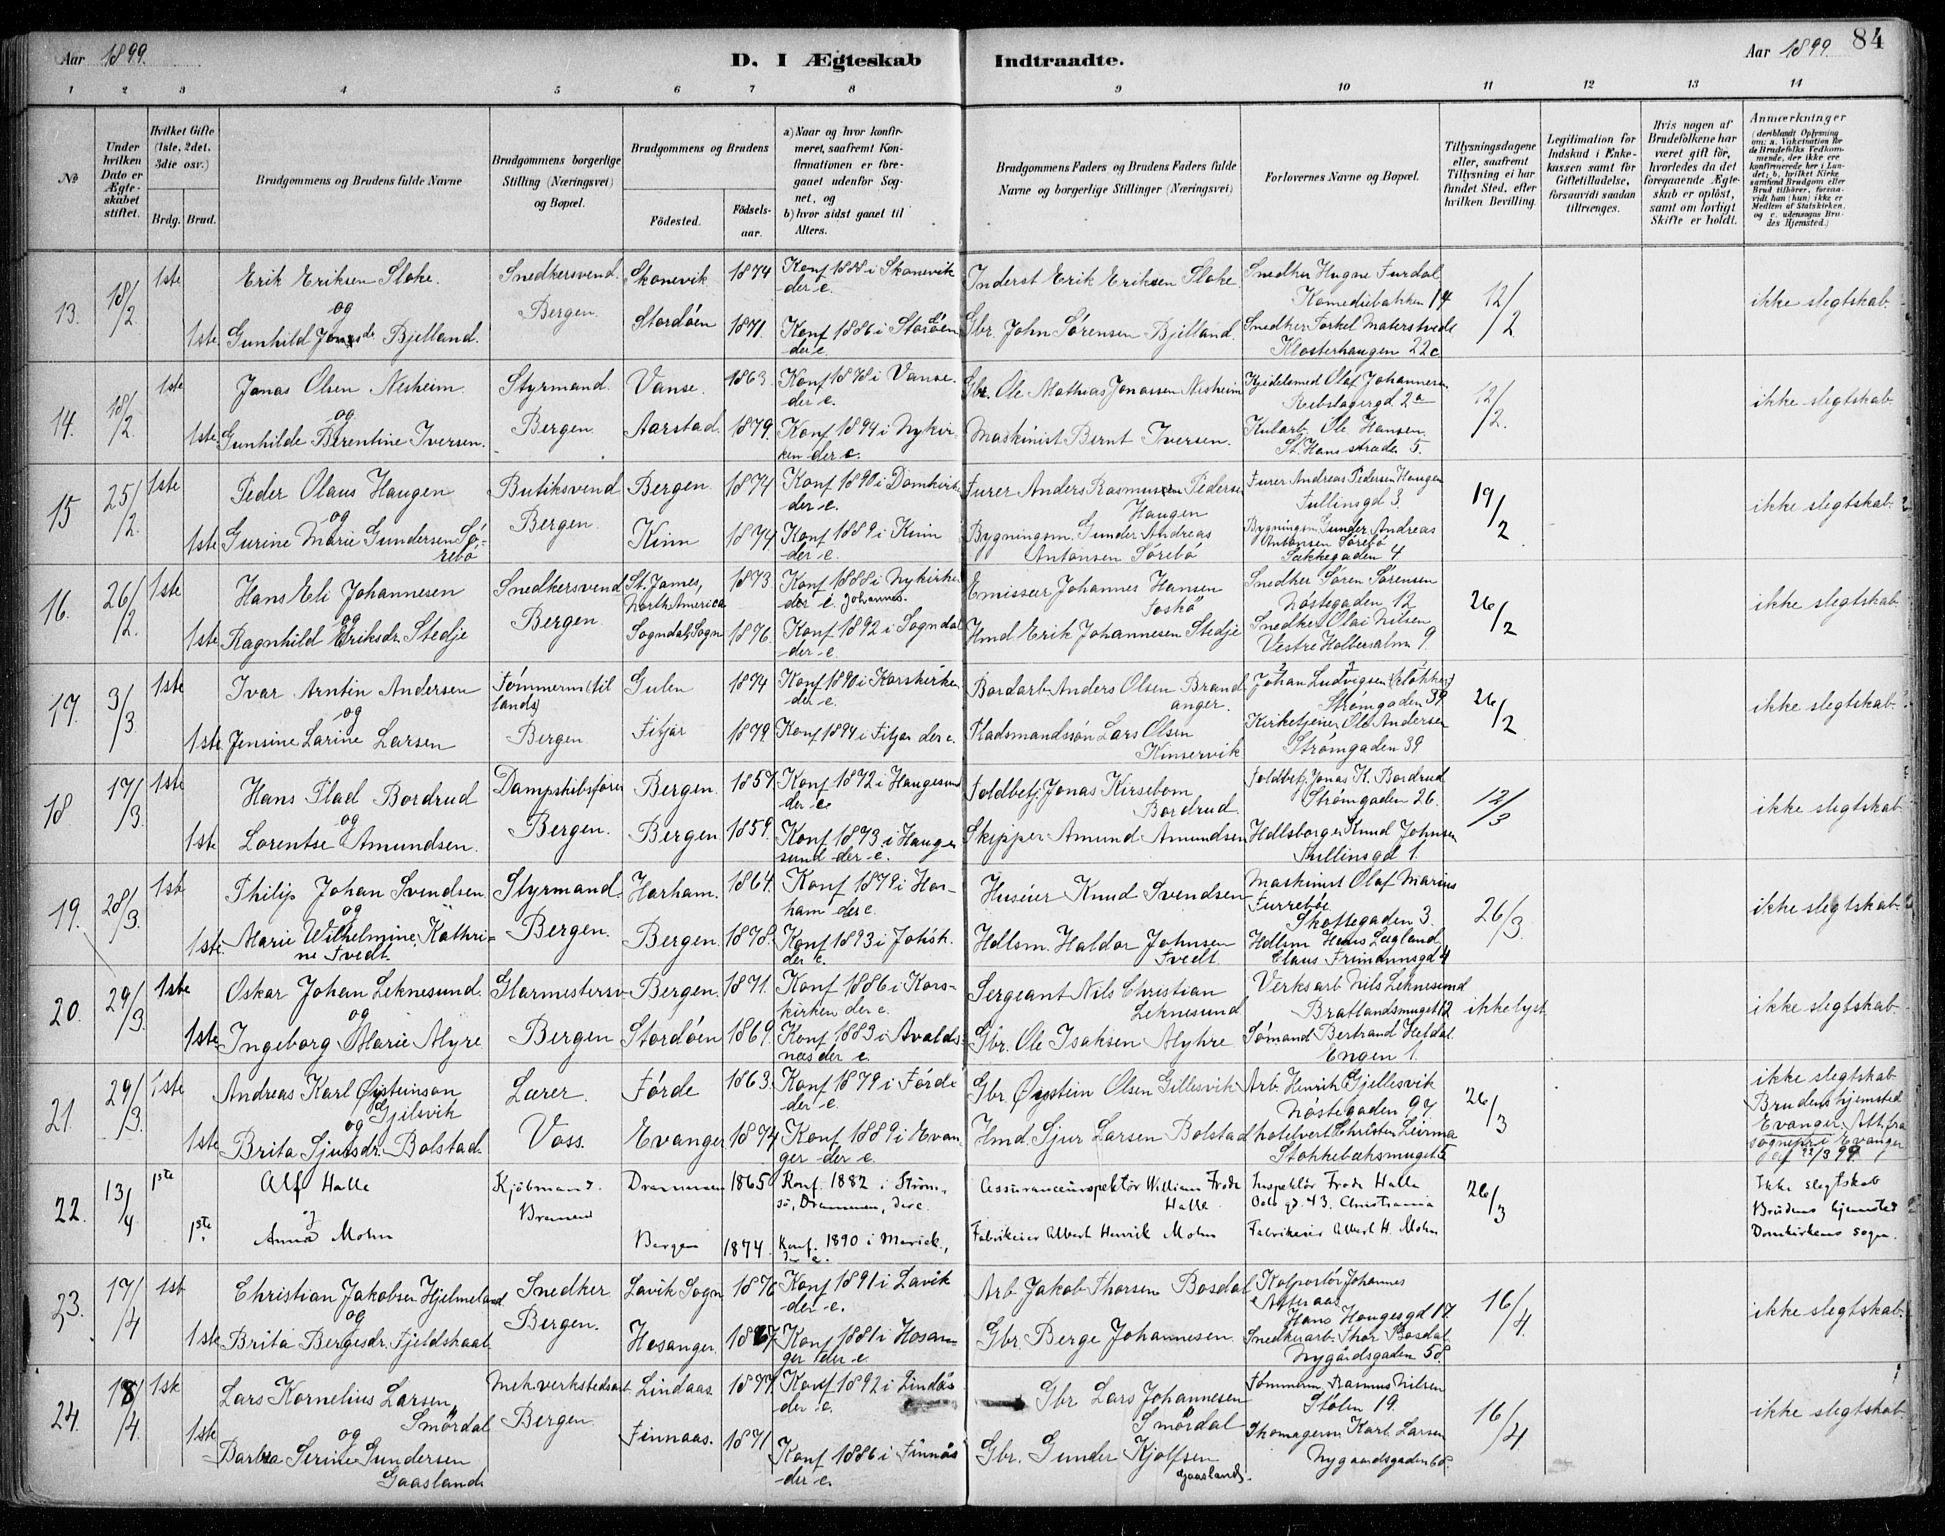 Aar 1899. D. I Ægteskab Indtraadte. Aar 1899. 84
1 2 3 4 5 6 7 8 9 10 11 12 13 14
№
Under hvilken Dato er Ægteskabet stiftet.
Hvilket Gifte (1ste, 2det, 3die osv.)
Brdg. Brud.
Brudgommens og Brudens fulde Navne
Brudgommens borgerlige Stilling (Næringsvei) og Bopæl.
Brudgommens og Brudens
Fødested. Fødselsaar.
a) Naar og hvor konfirmeret, saafremt Konfirmationen er foregaaet udenfor Sognet, og
b) hvor sidst gaaet til Alters.
Brudgommens Faders og Brudens Faders fulde Navne og borgerlige Stillinger (Næringsvei)
Forlovernes Navne og Bopæl.
Tillysningsdagene eller, saafremt Tillysning ei har fundet Sted, efter hvilken Bevilling.
Legitimation for Indskud i Enkekassen samt for Giftetilladelse, forsaavidt saadan tiltrænges.
Hvis nogen af Brudefolkene har været gift før, hvorledes da det foregaaende Ægteskab er opløst, samt om lovligt Skifte er holdt.
Anmærkninger (deriblandt Oplysning om: a. Vakcination for de Brudefolks Vedkommende, der ikke ere konfirmerede her i Landet; b. hvilket Kirkesamfund Brudgom eller Brud tilhører, forsaavidt han (hun) ikke er Medlem af Statskirken, og c. udensogns Brudes Hjemsted.)
13. 18/2 1ste Erik Eriksen Sloke. Snedkersvend Skonevik 1874 Konf 1888 i Skonevik der e. Inderst Erik Eriksen Sloke Snedker Hugne Furdal Komediebakken 14 12/2 ikke slegtskab
og Bergen.
1ste Gunhild Jonsdr. Bjelland. Stordöen 1871. Konf 1886 i Stordöen der e. Gbr. John Sørensen Bjelland. Snedker Torkel Materstvedt Klosterhaugen 22c
14. 18/2 1ste Jonas Olsen Nesheim. Styrmand. Vanse. 1863. Konf 1878 i Vanse. der e. Gbr. Ole Mathias Jonassen Nesheim Kjedelsmed Olaf Johannesen Rebslagergd 2a 12/2. ikke slegtskab
og Bergen.
1ste Gunhilde Berentine Iversen. Aarstad. 1879. Konf 1894 i Nykirken der e. Maskinist Bernt Iversen. Kularb. Ole Hansen St. Hans stræde 5.
15 25/2. 1ste Peder Olaus Haugen Butiksvend Bergen. 1874 Konf 1890 i Domkirk der e. Furer Anders Rasmussen Pedersen Haugen Furer Andreas Pedersen Haugen Tullinsgd 3 19/2 ikke slegtskab
og Bergen.
1ste Gurine Marie Gundersen Sørebø Kinn 1874 Konf 1889 i Kinn der e. Bygningsm. Gunder Andreas Antonsen Sørebø Bygningsm Gunder Andreas Antonsen Sørebø Sækkegaden 4
16. 26/2. 1ste Hans Eli Johannesen Snedkersvend St. James, North America 1873 Konf 1888 i Nykirke der e. Johannes. Emissær Johannes Hansen Foshö Snedker Søren Sørensen Nöstegaden 12 26/2 ikke slegtskab
og Bergen.
1ste Ragnhild Eriksdr. Stedje Sogndal, Sogn 1876 Konf 1892 i Sogndal der e. Hmd Erik Johannesen Stedje Snedker Olai Nilsen Vestre Holbersalm 9
17. 3/3 1ste Ivar Arntin Andersen Tömmerm (til lands) Gulen 1874 Konf 1890 i Korskirken der e. Bordarb. Anders Olsen Brandanger. Johan Ludvigsen Strömgaden 39 26/2 ikke slegtskab
og Bergen
1ste Jensine Larine Larsen Fitjar 1879. Konf 1894 i Fitjar der e. Pladsmandssön Lars Olsen Kinservik Kirketjener Ole Andersen Strömgaden 39
18 17/3. 1ste Hans Plad Bordrud Dampskibsförer Bergen. 1857. Konf 1872 i Haugesund der e. Toldbetj. Jonas Kirsebom Bordrud Toldbetj. Jonas K. Bordrud Strömgaden 26. 12/3 ikke slegtskab
og Bergen.
1ste Lorentse Amundsen. Bergen 1859. Konf 1873 i Haugesund der e. Skipper Amund Amundsen Hdlsborger Knud Johnsen Tullinsgd 1.
19. 28/3. 1ste Philip Johan Svendsen Styrmand. Harham. 1864. Konf 1879 i Harham der e. Huseier Knud Svendsen Maskinist Olaf Marius Furreböe Skottegaden 3. 26/3. ikke slegtskab
og Bergen.
1ste Marie Wilhelmine Kathrine Tvedt. Bergen. 1878. Konf 1893 i Johsk. der e. Hdlsm. Haldor Johnsen Tvedt Hdlsm Hans Lægland Claus Frimannsgd 4
20. 29/3. 1ste Oskar Johan Leknesund. Glarmestersv Bergen. 1871. Konf 1886 i Korskirken der e. Sergeant Nils Christian Leknesund Verksarb Nils Leknesund Bratlandsmuget 12 ikke lyst. ikke slegtskab
og Bergen
1ste Ingeborg Marie Myre Stordöen 1869. Konf 1883 i Avaldsnæs der e. Gbr. Ole Isaksen Myhre Sömand Bertrand Heldal Engen 1.
21. 29/3. 1ste Andreas Karl Øysteinson Gjilsvik Lærer. Förde 1863. Konf 1879 i Förde der e. Gbr. Øystein Olsen Gillesvik Arb. Henrik Gjellesvik Nöstegaden 97. 26/3 ikke slegtskab
og Voss. Brudens hjemsted Evanger. Att. fra sognepr i Evanger af 22/3 99.
1ste Brita Sjursdr. Bolstad. Evanger 1874 Konf 1889 i Evanger der e. Hmd. Sjur Larsen Bolstad Hotelvert Christen Leirma Stokkebæksmuget 5
22. 13/4 1ste Alf Halle Kjöbmand. Drammen 1865 Konf. 1882 i Strömsö, Drammen, der e. Assuranceinspektör William Frode Halle. Inspektör Frode Halle Oslo gd. 43. Christiania 26/3 Ikke slegtskab
og Bremend Brudens hjemsted Domkirkens sogn.
1ste. Anna Mohn Bergen 1874. Konf. 1890 i Mariek., der e. Fabrikeier Albert Henrik Mohn Fabrikeier Albert H. Mohn
23. 17/4 1st Christian Jakobsen Hjelmeland Snedker Lavik Sogn 1876 Konf 1891 i Lavik der e. Arb Jakob Thorsen Bosdal Kolportör Johannes Hans Haugesgd 17. 16/4 ikke slegtskab
og Bergen.
1ste Brita Bergesdr. Fjeldskaat Hosanger. 1867. Konf 1881 i Hosanger der e. Gbr. Berge Johannesen. Snedkerarb. Thor Bosdal Nygårdsgaden 58.
24. 18/4. 1ste Lars Kornelius Larsen Smördal Mek. verkstedsarb. Lindaas. 1877. Konf 1892 i Lindås der e. Gbr Lars Johannesen Smördal Tömmerm. Rasmus Nilsen Stölen 19. 16/4 ikke slegtskab
og Bergen.
1ste Barbra Serine Gundersen Gaasland. Finnaas. 1871. Konf 1886 i Finnås der e. Gbr. Gunder Kjolfsen Gaasland. Skomagerm Karl Larsen Nygaardsgaden 68.